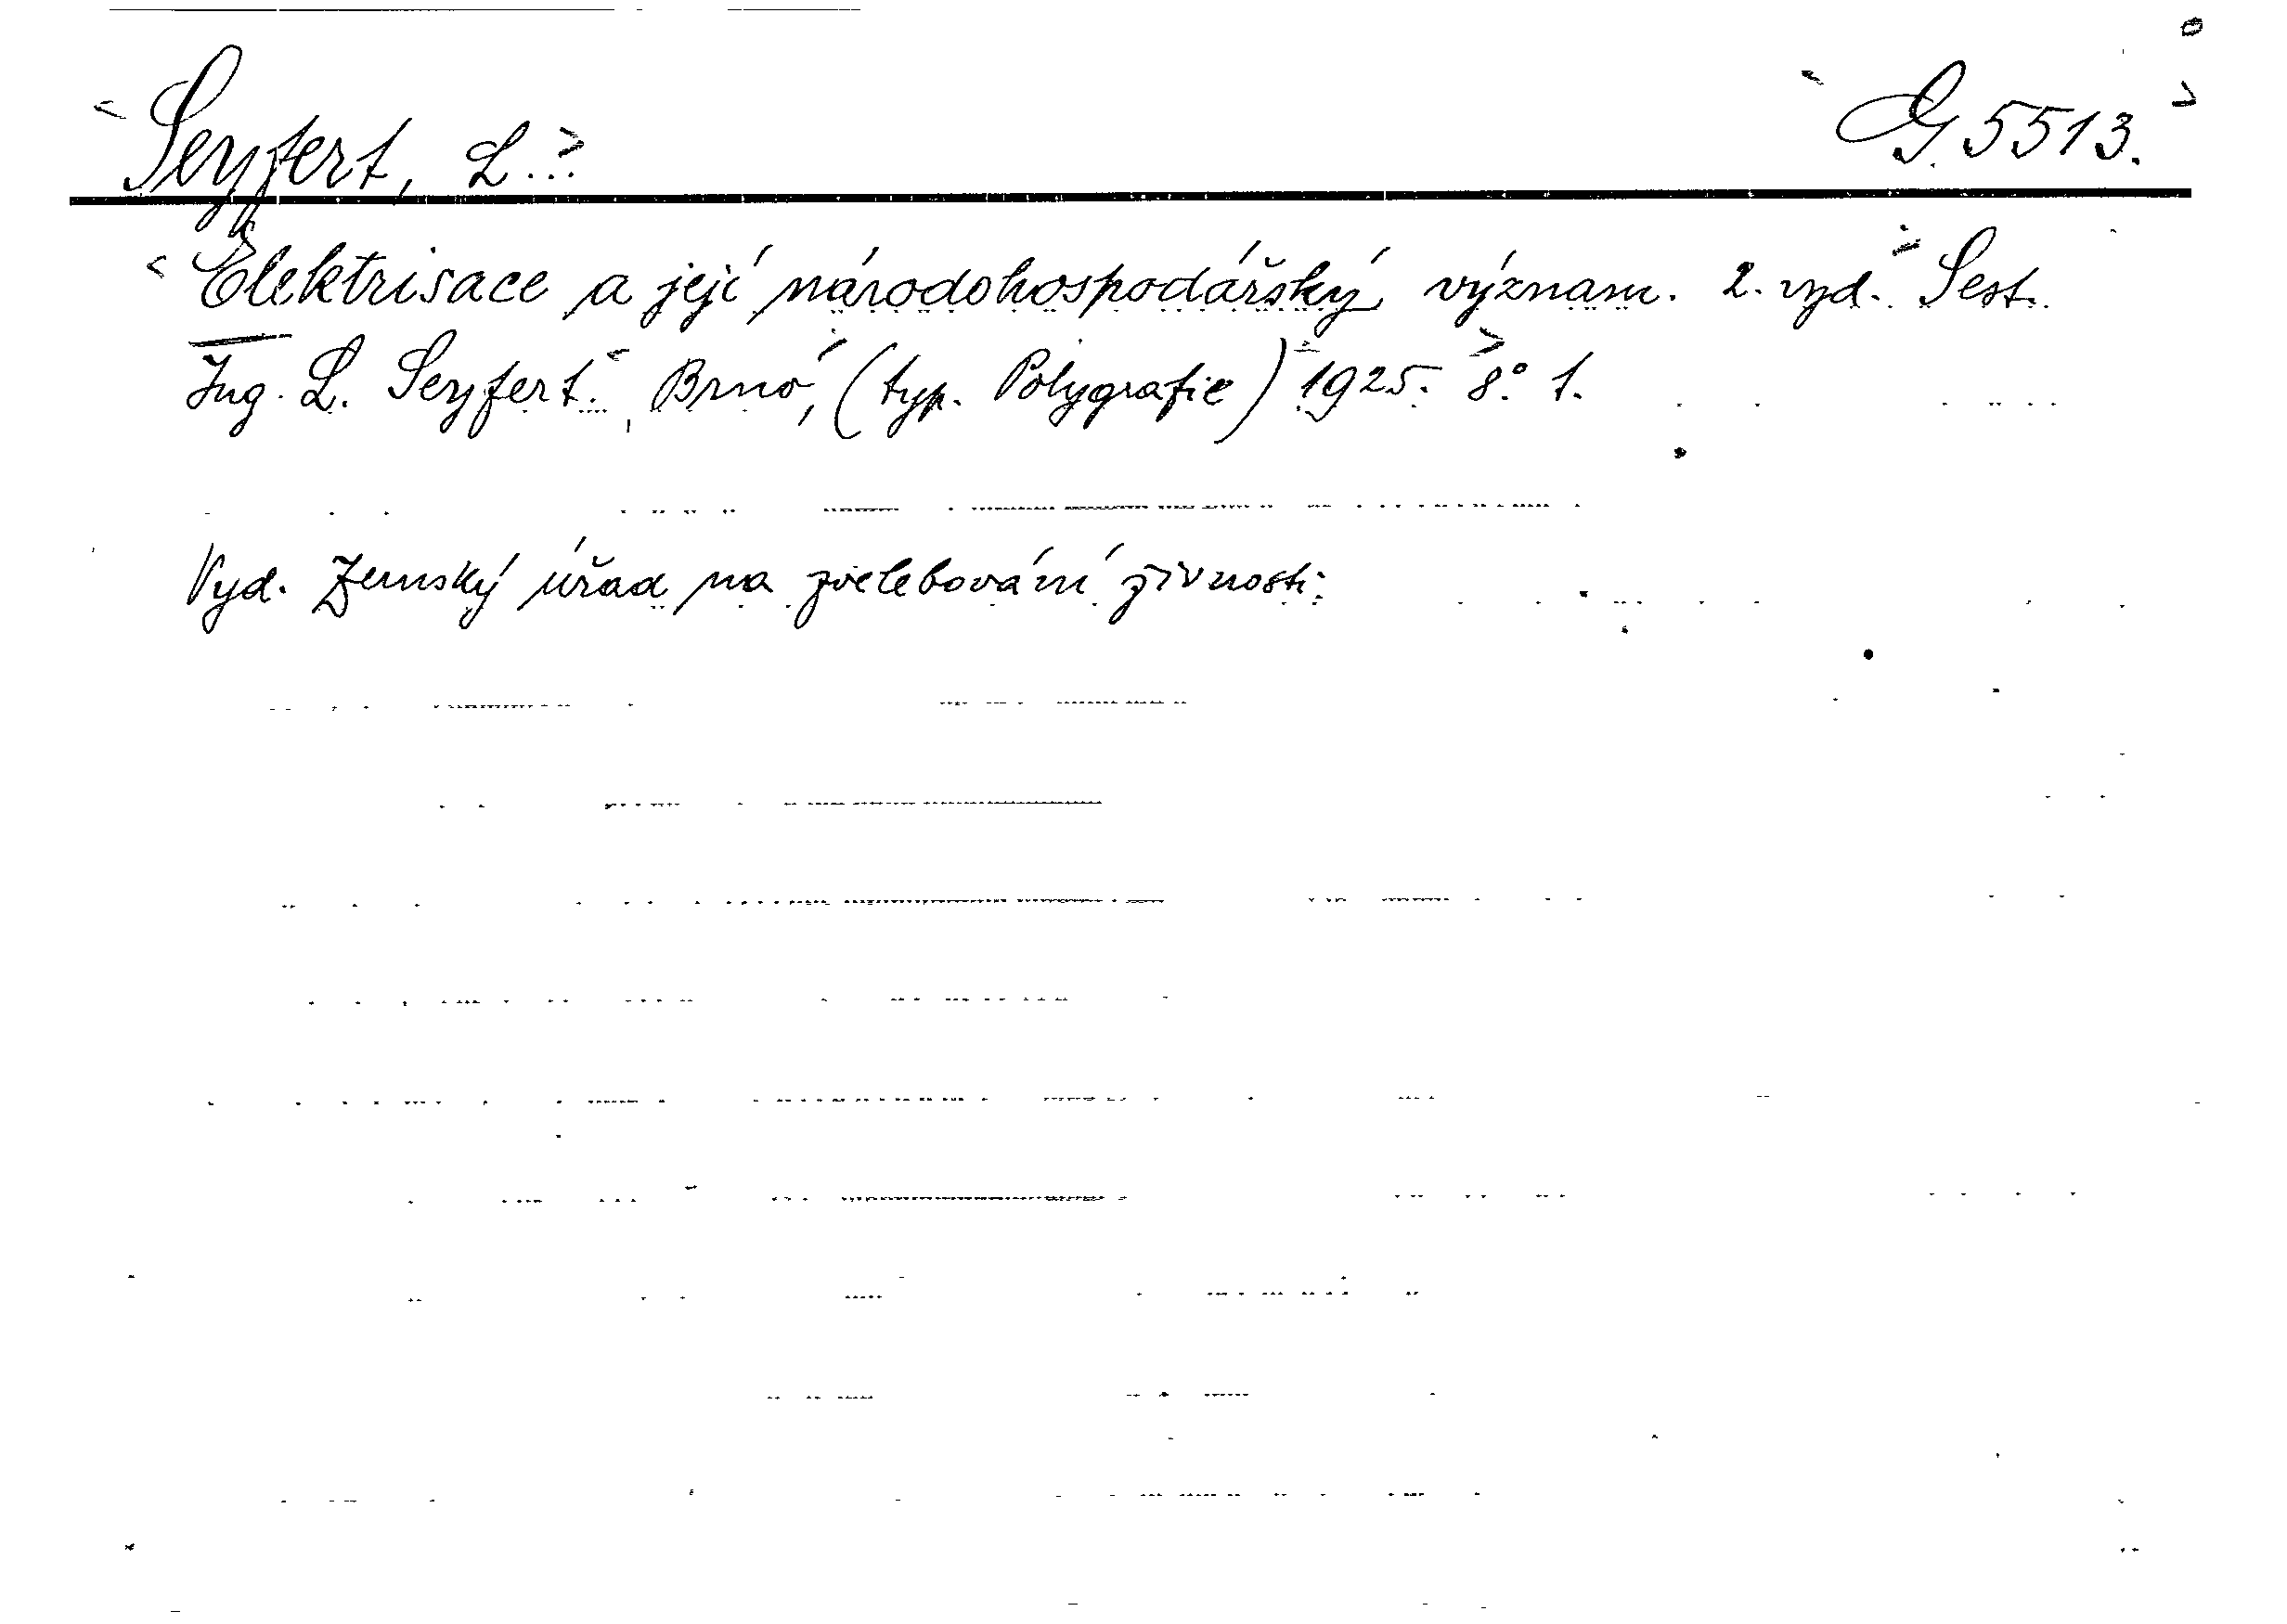 Seyfert, L.: G 5513.
Elektrisace a její národohospodářský význam. 2. vyd. Sest.
Ing. L. Seyfert. Brno, (typ. Polygrafie) 1925. 8° 1.
Vyd. Zemský úřad na zvelebování živnosti.